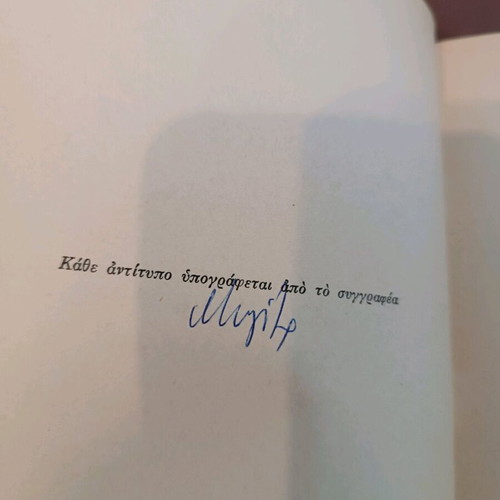 Κάθε ἀντίτυπο ὑπογράφεται ἀπὸ τὸ συγγραφέα